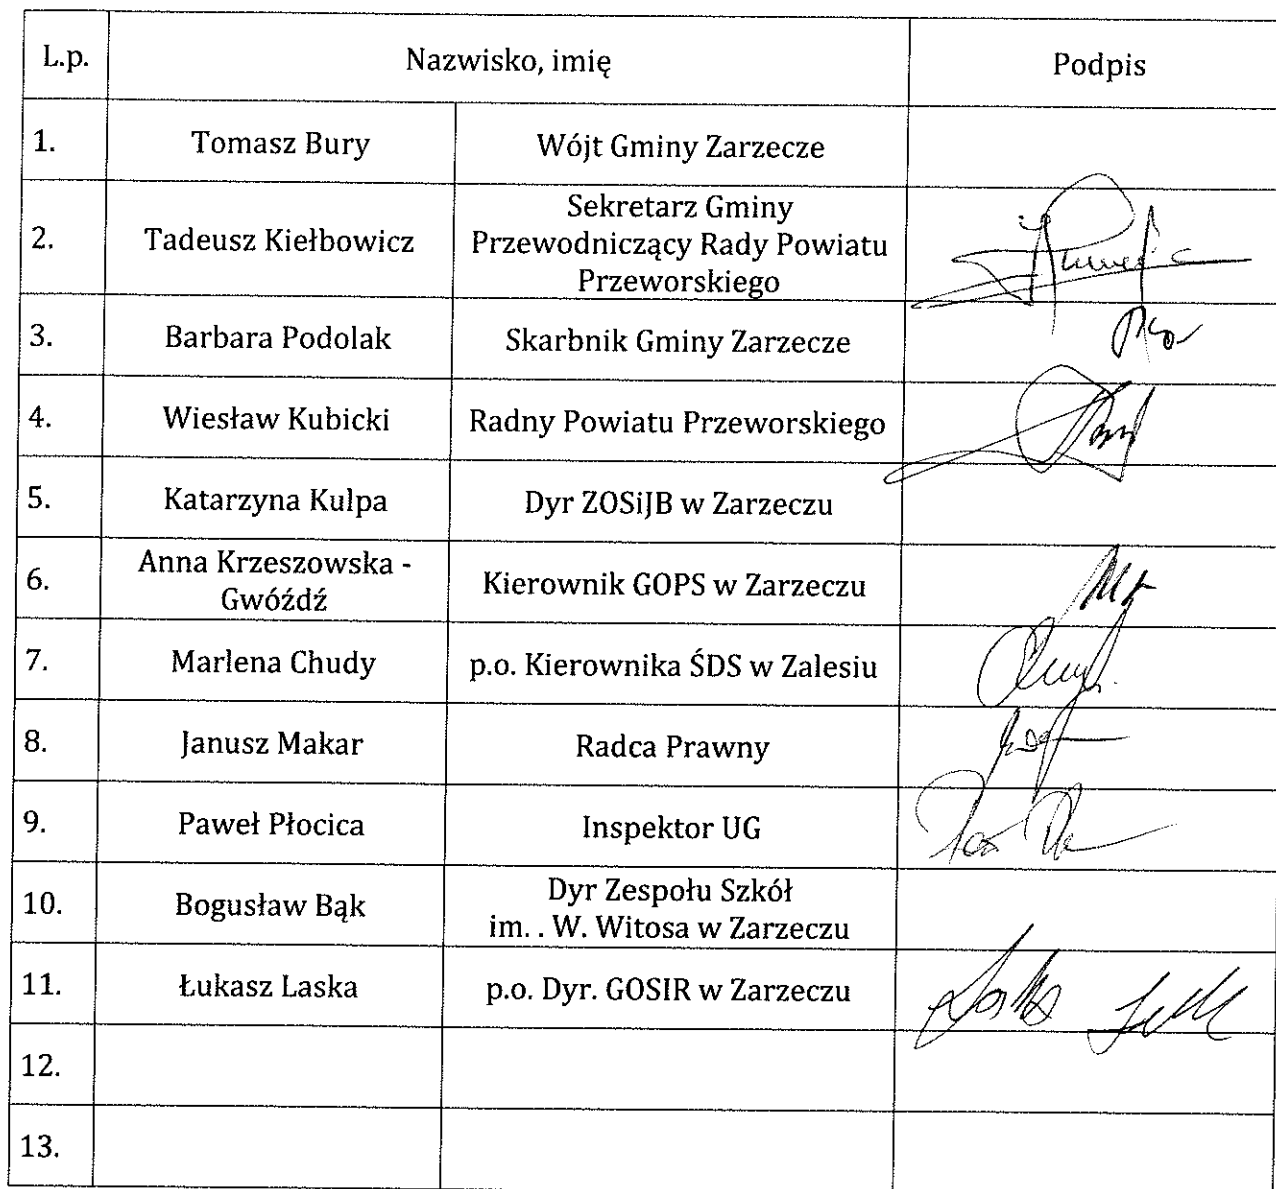 L.p. Nazwisko, imię Podpis
1. Tomasz Bury Wójt Gminy Zarzecze
2. Tadeusz Kiełbowicz Sekretarz Gminy
Przewodniczący Rady Powiatu
Przeworskiego
3. Barbara Podolak Skarbnik Gminy Zarzecze
4. Wiesław Kubicki Radny Powiatu Przeworskiego
5. Katarzyna Kulpa Dyr ZOSiJB w Zarzeczu
6. Anna Krzeszowska -
Gwóźdź Kierownik GOPS w Zarzeczu
7. Marlena Chudy p.o. Kierownika ŚDS w Zalesiu
8. Janusz Makar Radca Prawny
9. Paweł Płocica Inspektor UG
10. Bogusław Bąk Dyr Zespołu Szkół
im. . W. Witosa w Zarzeczu
11. Łukasz Laska p.o. Dyr. GOSIR w Zarzeczu
12.
13.